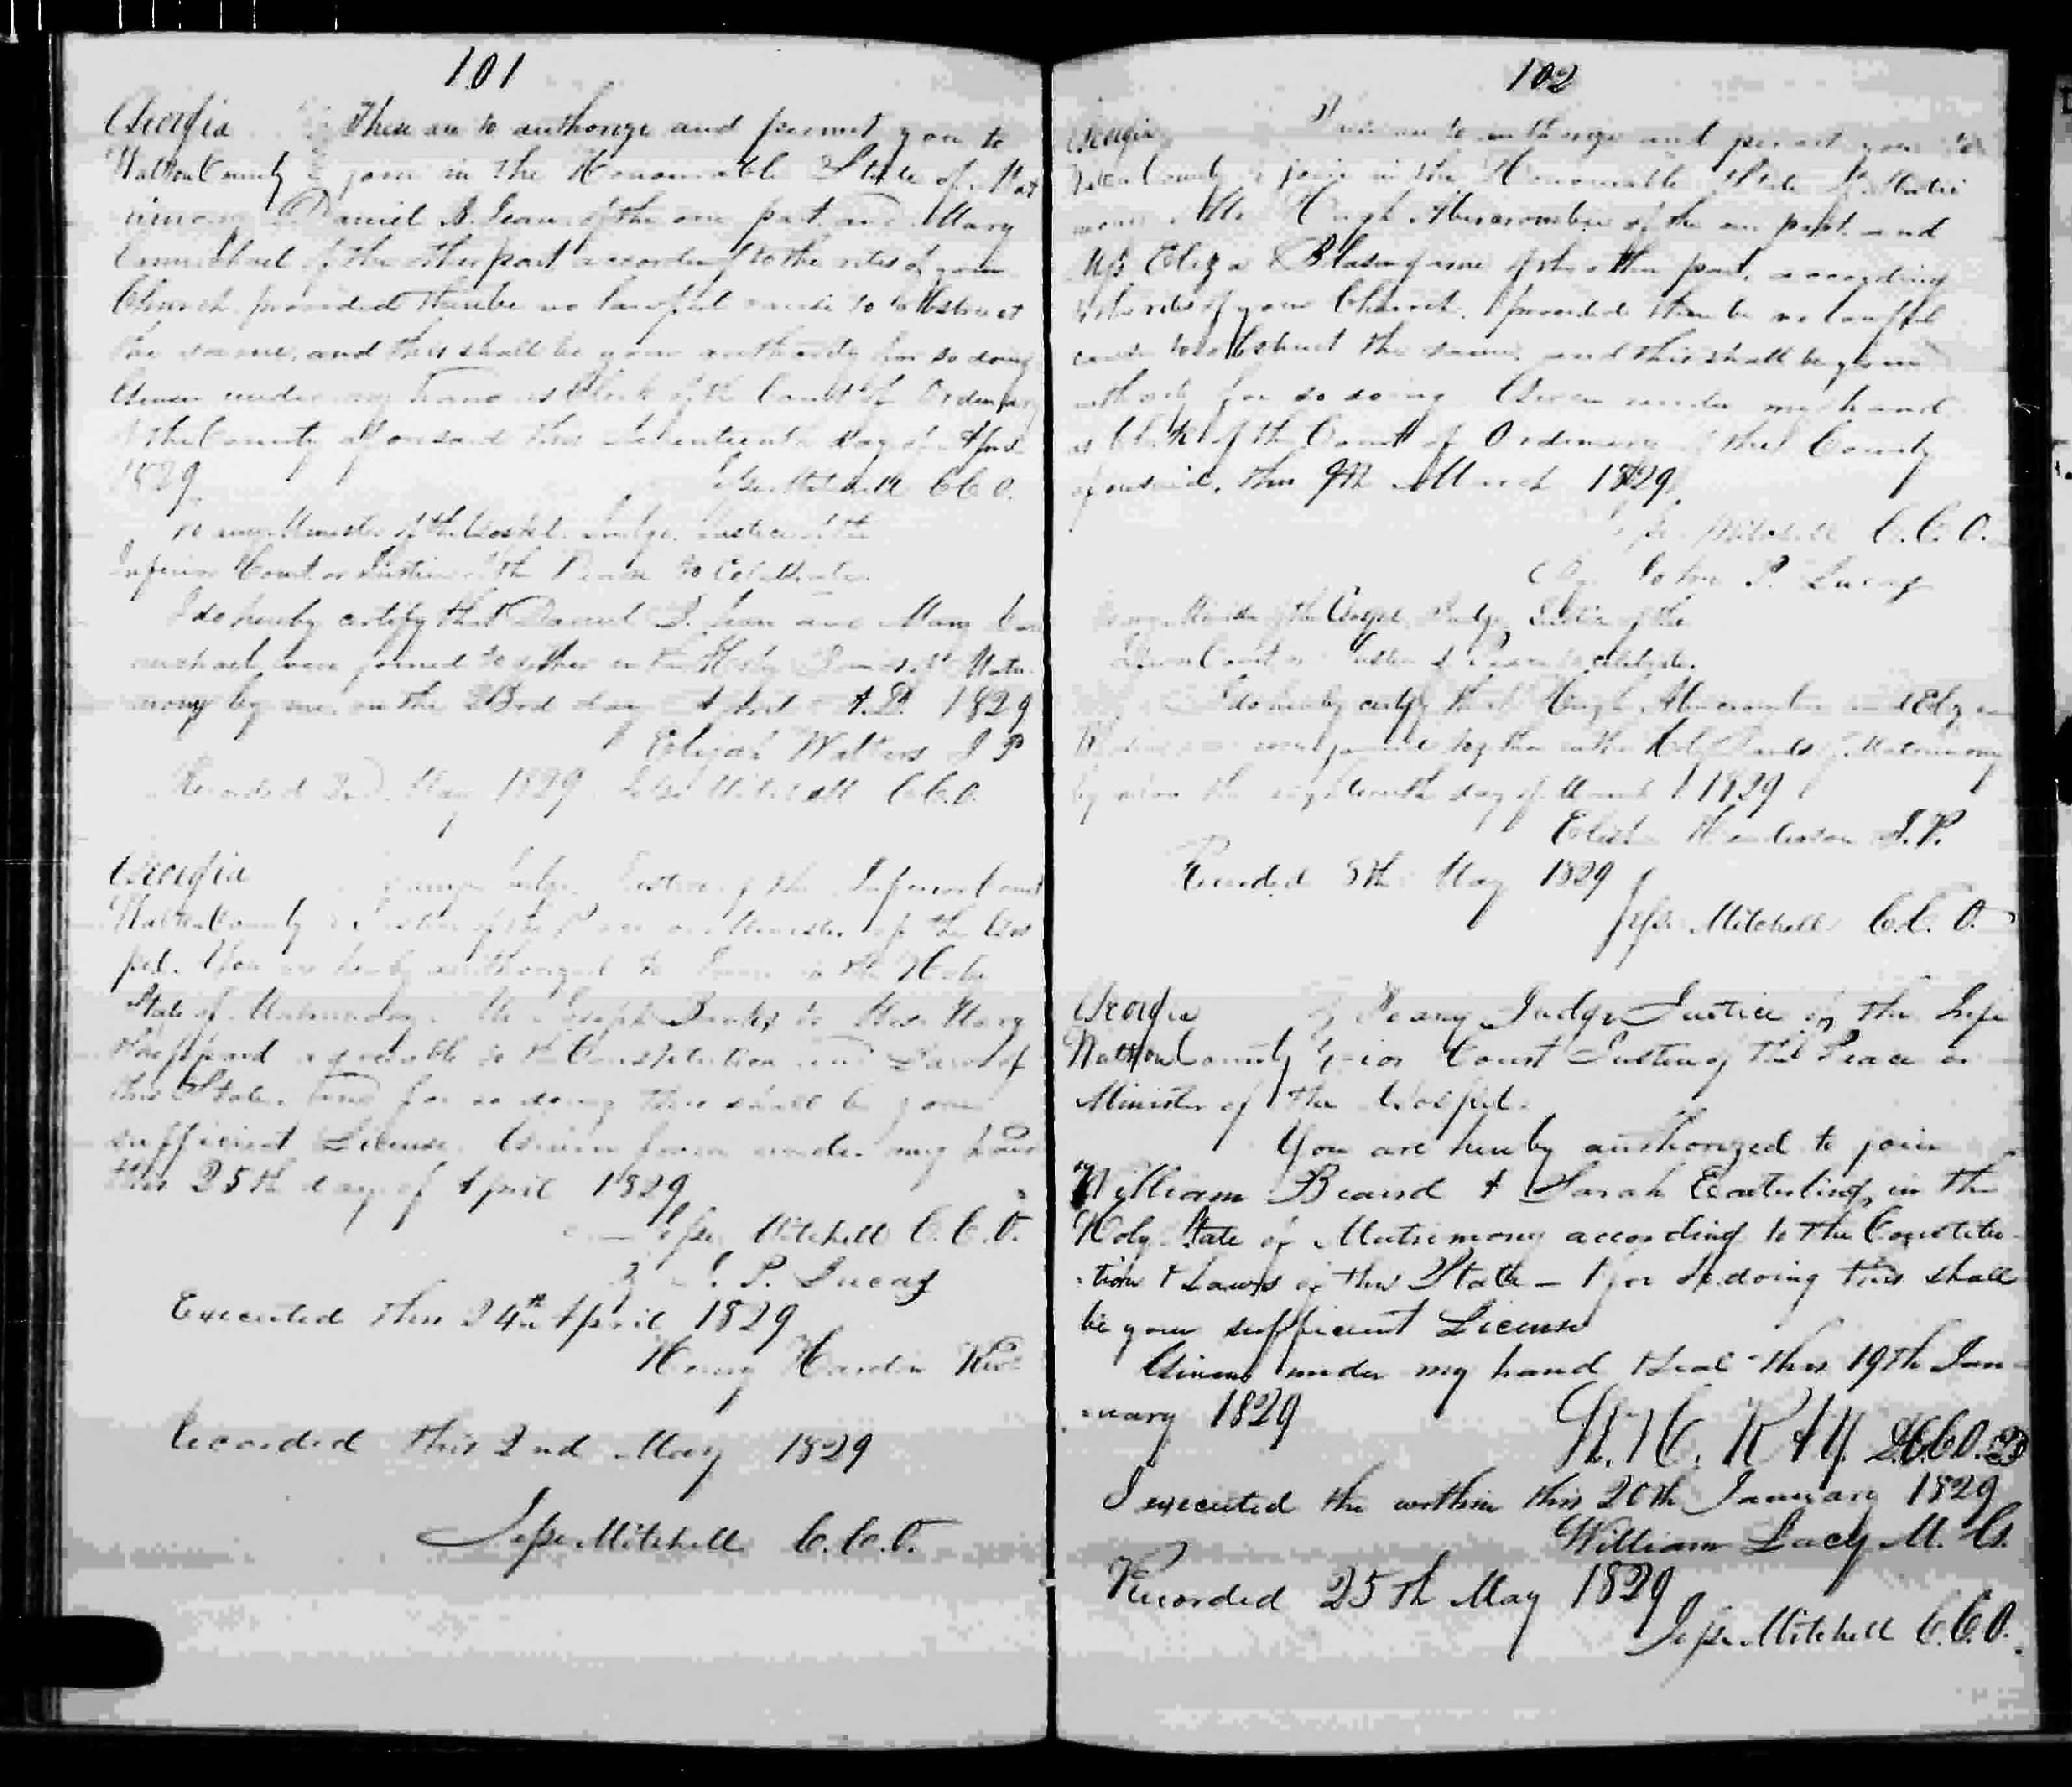 101
Georgia These are to authorize and permit you to
Walton County join in the Honourable State of Mat
rimony Daniel of the one part and Mary
Carmichael of the other part according to the rites of your
Church provided there be no lawful cause to obstruct
the same, and this shall be your authority for so doing
Given under my hand as Clerk of the Court of Ordinary
of the County aforesaid this Seventeenth day of April
1829 Jesse Mitchell C C O.
To any Minister of the Gospel, Judge, Justice of the
Inferior Court or Justice of the Peace to Celebrate.
I do hereby certify that Daniel and Mary Car
michael were joined together in the Holy State of Matri
mony by me on the 23rd day April A.D. 1829
Elijah Walters J P
Recorded 2nd May 1829 Jesse Mitchell C.C.O.
Georgia To any Judge, Justice of the Inferior Court
Walton County Justice of the Peace or Minister of the Gos
pel. You are hereby authorized to join in the Holy
State of Matrimony. Mr Joseph to Miss Mary
agreeable to the Constitution and Laws of
this State. and for so doing this shall be your
sufficient License. Given from under my hand
this 25th day of April 1829
Jesse Mitchell C.C.O.
By J. P. Lucas
Executed this 24th April 1829
Henry Hardin
Recorded this 2nd May 1829
Jesse Mitchell C.C.O.
102
Georgia These are to authorize and permit you to
Walton County join in the Honourable State of Matri
mony Mr Hugh Abercrombie of the one part and
Miss Eliza Blasingame of the other part, according
to the rites of your Church. provided there be no lawful
cause to obstruct the same, and this shall be your
authority for so doing Given under my hand
as Clerk of the Court of Ordinary of the County
aforesaid, this 9th March 1829
Jesse Mitchell C.C.O.
By John P. Lucas
To any Minister of the Gospel, Judge, Justice of the
Inferior Court or Justice of Peace to celebrate.
I do hereby certify that Hugh Abercrombie and Eliza
Blasingame were joined together in the Holy State of Matrimony
by me on the eighteenth day of March 1829
Elisha Henderson J.P.
Recorded 8th May 1829
Jesse Mitchell C.C.O.
Georgia To any Judge Justice of the Infe
Walton County rior Court Justice of the Peace or
Minister of the Gospel.
You are hereby authorized to join
William Beard & Sarah Easterling, in the
Holy State of Matrimony according to the Constitu
tion & Laws of this State – & for so doing this shall
be your sufficient License
Given under my hand & seal this 19th Jan
uary 1829
I executed the within this 20th January 1829
William Lacy M. G.
Recorded 25th May 1829
Jesse Mitchell C.C.O.